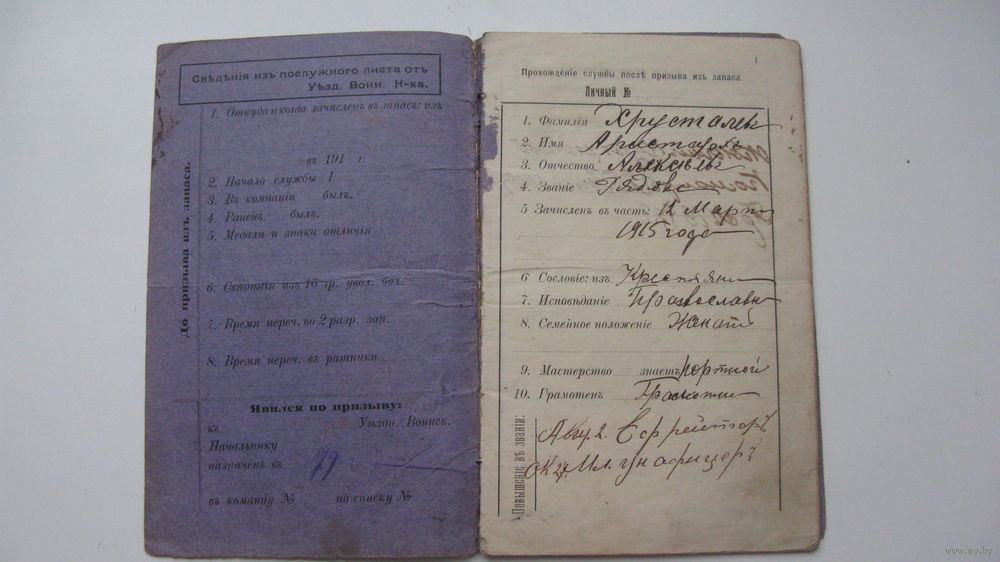 Свѣдѣнія изъ послужного листа отъ
Уѣзд. Воин. Н-ка.
До призыва изъ запаса.
1. Откуда и когда зачисленъ въ запасъ: изъ
въ 191 г.
2. Начало службы 1
3. Въ компаніи былъ.
4. Раненъ былъ.
5. Медали и знаки отличія
6. Свѣдѣнія изъ 16 гр. увол. бол.
7. Время переч. во 2 разр. зап.
8. Время переч. въ ратники
Явился по призыву:
къ Уѣздн. Воинск.
Начальнику
назначенъ въ 79
въ команду № по списку №
1
Прохожденіе службы послѣ призыва изъ запаса.
Личный №
1. Фамилія Хрусталевъ
2. Имя Аристархъ
3. Отчество Алексѣевъ
4. Званіе Рядовой
5 Зачисленъ въ часть: 12 Марта
1915 года
6 Сословіе: изъ Крестьянъ
7. Исповѣданіе Православн
8. Семейное положеніе Женатъ
9. Мастерство знаетъ портной
10. Грамотенъ Грамотный
Повышеніе въ званіи:
Авг. 2. Ефрейторъ
Ок 27. Мл. унафицеръ
www.ay.by